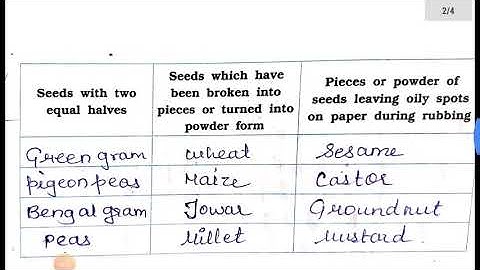 2/4
Seeds with two equal halves | Seeds which have been broken into pieces or turned into powder form | Pieces or powder of seeds leaving oily spots on paper during rubbing
Green gram | wheat | Sesame
pigeon peas | Maize | Castor
Bengal gram | Jowar | Groundnut
Peas | Millet | Mustard.